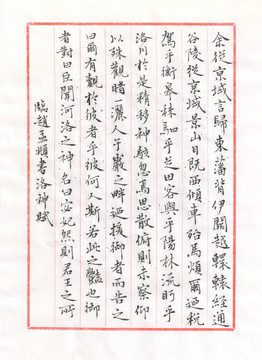 余從京域言歸東藩背伊闕越轘轅經通
谷陵從京域景山日既西傾車殆馬煩爾迺税
駕乎蘅皋秣駟乎芝田容與乎陽林流眄乎
洛川於是精移神駭忽焉思散俯則未察仰
以殊觀睹一麗人于巖之畔迺援御者而告之
曰爾有覿於彼者乎彼何人斯若此之豔也御
者對曰臣聞河洛之神名曰宓妃然則君王之所
臨趙孟頫書洛神賦